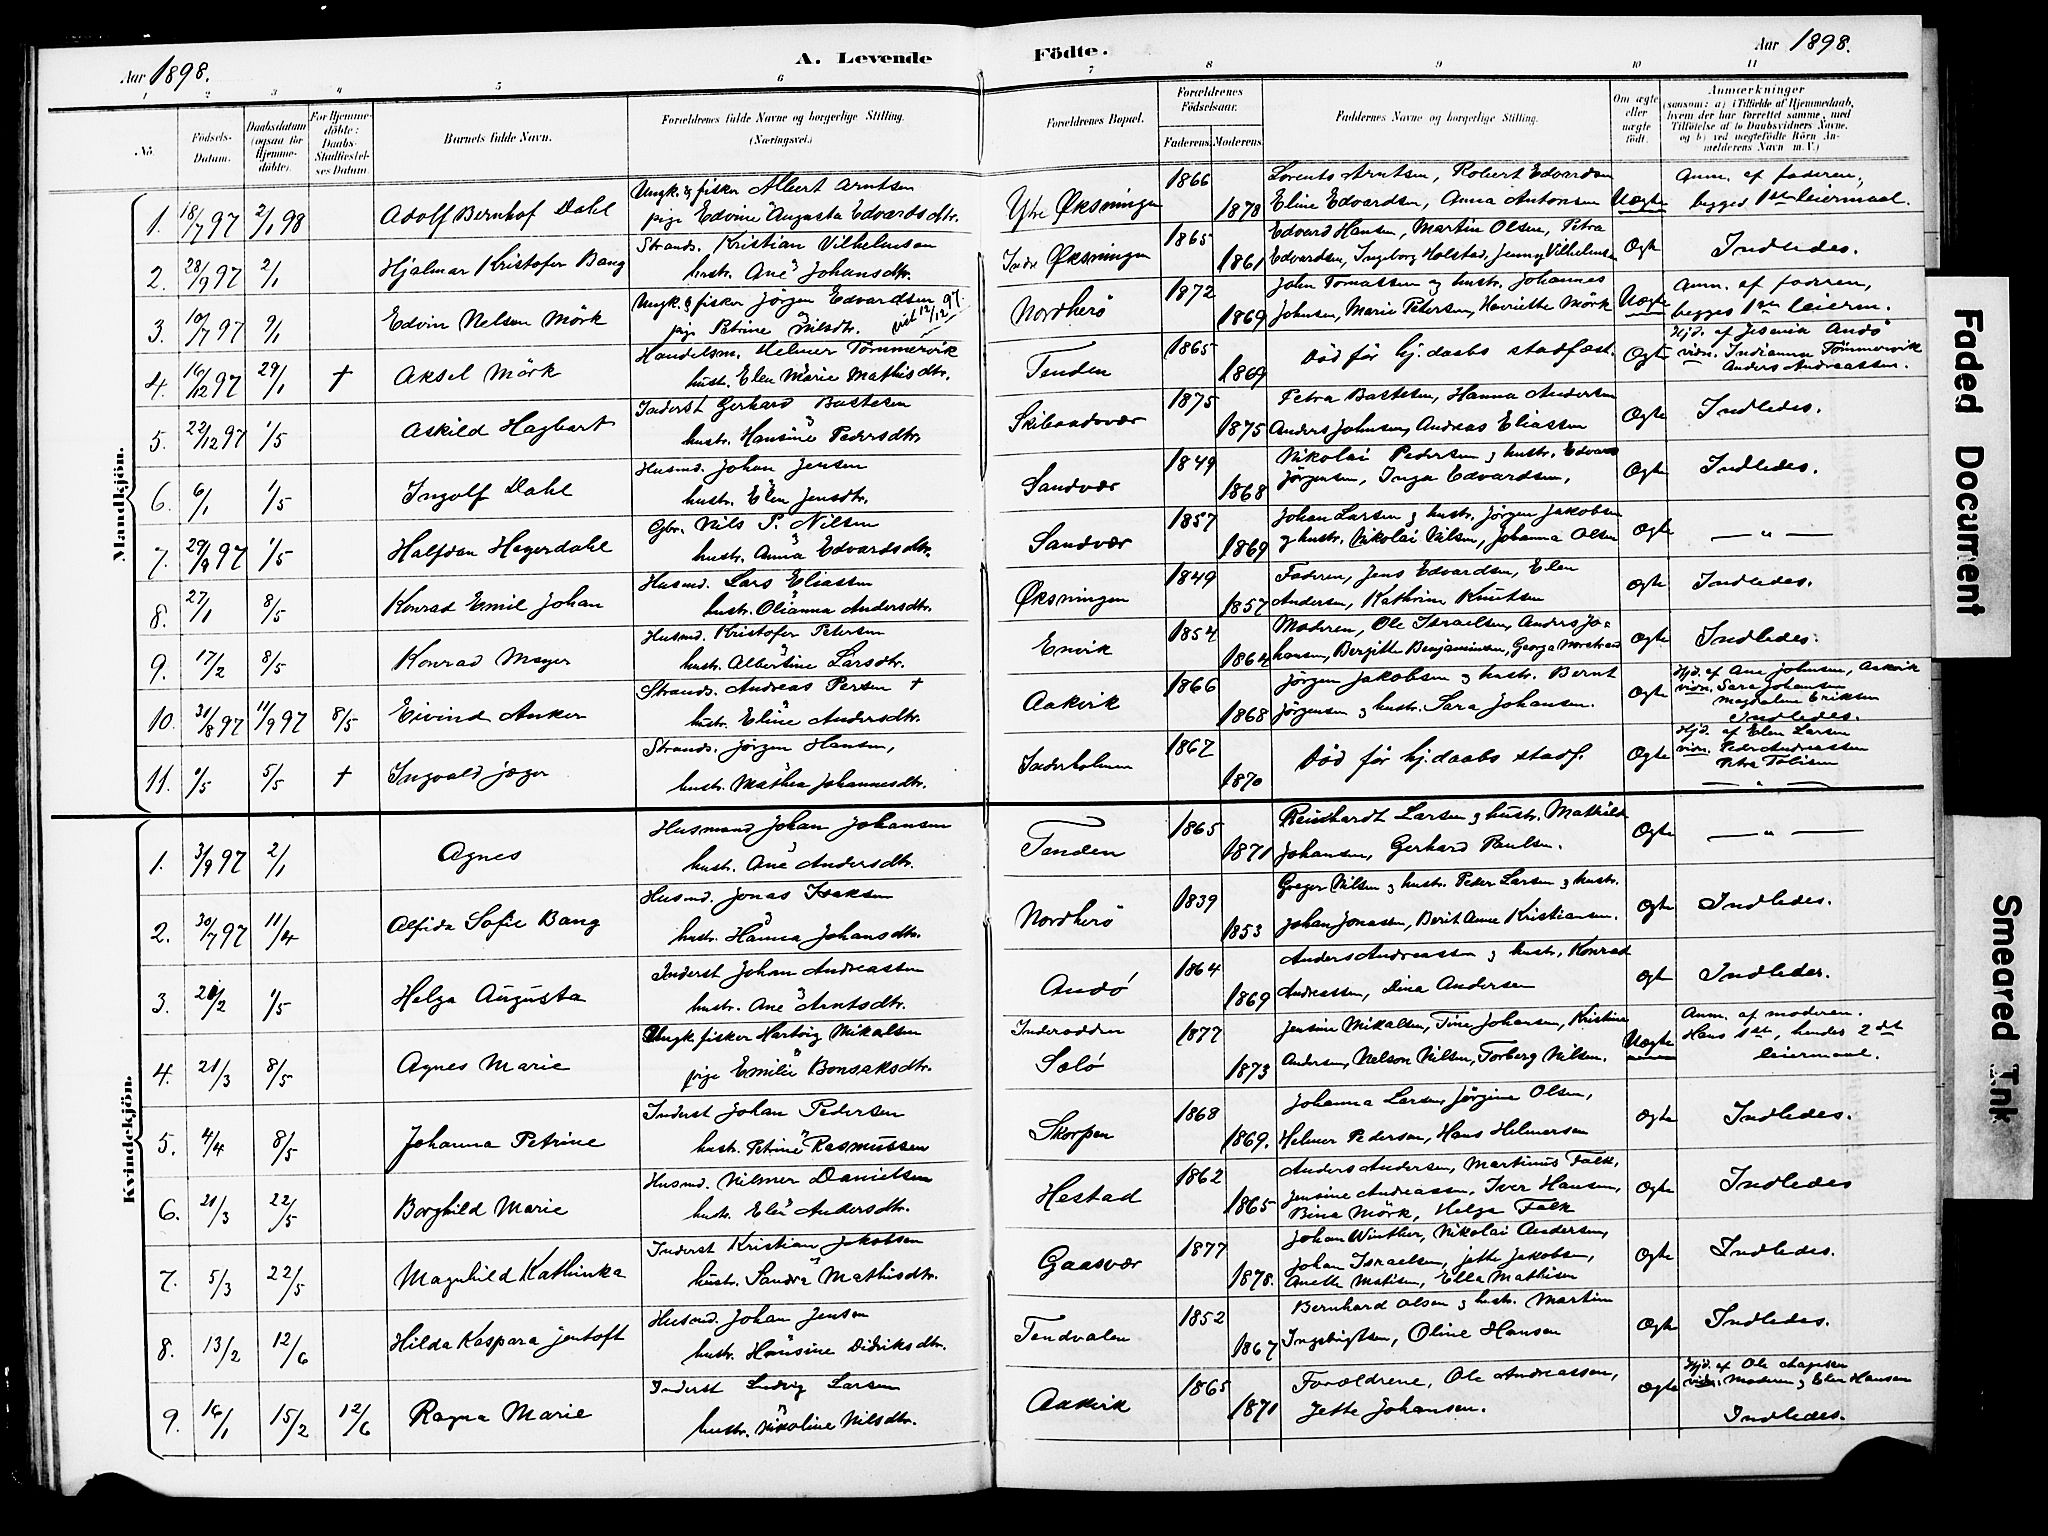 Aar 1898. A. Levende Födte. Aar 1898.
1 2 3 4 5 6 7 8 9 10 11
No. Födsels-Datum. Daabsdatum (ogsaa for Hjemme-döbte). For Hjemme-döbte: Daabs-Stadfæstel-ses Datum. Barnets fulde Navn. Forældrenes fulde Navne og borgerlige Stilling. (Næringsvei.) Forældrenes Bopæl. Forældrenes Födselsaar. Faderens. Moderens. Faddernes Navne og borgerlige Stilling. Om ægte eller uægte födt. Anmærkninger (saasom: a) i Tilfælde af Hjemmedaab, hvem der har forrettet samme, med Tilföielse af to Daabsvidners Navne, og b) ved uægtefödte Börn An-melderens Navn m. V.)
Mandkjön.
1. 18/7 97 2/1 98 Adolf Bernhof Dahl Ungk. & fisker Albert Arntsen Ytre Øksningen 1866 Lorents Arntsen, Robert Edvardsen Uægte Anm. af faderen,
pige Edvine Augusta Edvardsdtr. 1878 Eline Edvardsen, Anna Antonsen begges 1ste leiermaal.
2. 28/9 97 2/1 Hjalmar Kristofer Bang Strands. Kristian Vilhelmsen Indre Øksningen 1865 Edvard Hansen, Martin Olsen, Petra Ægte Indledes.
hustr. Ane Johansdtr. 1861 Edvardsen, Ingeborg Holstad, Jenny Vilhelmsen
3. 10/7 97 9/1 Edvin Nelsen Mörk Ungk. & fisker Jörgen Edvardsen Nordherö 1872 John Tomassen og hustr. Johannes Uægte Anm. af fadren,
pige Petrine Nilsdtr. viet 12/12 97. 1869 Johnsen, Marie Petersen, Henriette Mörk begges 1ste leierm.
4. 16/12 97 29/1 † Aksel Mörk Handelsm. Helmer Tömmervik Tenden 1865 Död för hj.daabs stadfæst. Ægte Hjd. af Jesmia Andö
hustr. Elen Marie Mathisdtr. 1869 vidn. Indianna Tömmervik
Anders Andreassen.
5. 22/12 97 1/5 Askild Hagbart Inderst Gerhard Bastesen Skibaadsvær 1875 Petra Bastesen, Hanna Andersen Ægte Indledes.
hustr. Hansine Pedersdtr. 1875 Anders Johnsen, Andreas Eliassen
6. 6/1 1/5 Ingolf Dahl Husmd. Johan Jensen Sandvær 1849 Nikolai Pedersen & hustr. Edvard Ægte Indledes.
hustr. Elen Jensdtr. 1868 Jörgensen, Inga Edvardsen,
7. 29/9 97 1/5 Halfdan Heyerdahl Gbr. Nils P. Nilsen Sandvær 1857 Johan Larsen & hustr. Jörgen Jakobsen Ægte — " —
hustr. Anna Edvardsdtr. 1869 & hustr. Nikolai Nilsen, Johanna Olsen
8. 27/1 8/5 Konrad Emil Johan Husmd. Lars Eliassen Øksningen 1849 Faderen, Jens Edvardsen, Elen Ægte Indledes.
hustr. Olianna Andersdtr. 1857 Andersen, Kathrine Knutsen
9. 17/2 8/5 Konrad Meyer Husmd. Kristofer Petersen Envik 1854 Moderen, Ole Israelsen, Anders Jo- Ægte Indledes.
hustr. Albertine Larsdtr. 1864 hansen, Bergitte Benjaminsen, Georga Norstrand
10. 31/8 97 11/9 97 8/5 Eivind Anker Strands. Andreas Persen † Aakvik 1866 Jörgen Jakobsen & hustr. Bernt Ægte Hjd. af Ane Johnsen, Aakvik
hustr. Eline Andersdtr. 1868 Jörgensen & hustr. Sara Johansen. vidn. Sara Johansen
Magdalene Eriksen
Indledes.
11. 1/5 5/5 † Ingvald Jæger Strands. Jörgen Hansen, Inderholmen 1867 Död för hj.daabs stadf. Ægte Hjd. af Elen Larsen
hustr. Mathea Johannesdtr. 1870 vidn. Peder Andreassen
Petra Tobisen
— " —
Kvindekjön.
1. 3/9 97 2/1 Agnes Husmand Johan Johansen Tenden 1865 Reinhardt Larsen & hustr. Mathilde Ægte — " —
hustr. Ane Andersdtr. 1871 Johansen, Gerhard Paulsen.
2. 30/7 97 11/4 Alfida Sofie Bang Husmd. Jonas Isaksen Nordherö 1839 Greger Nilsen & hustr. Peder Larsen & hustr. Ægte Indledes.
hustr. Hanna Johansdtr. 1853 Johan Jonassen, Berit Anne Kristiansen.
3. 20/2 1/5 Helga Augusta Inderst Johan Andreassen Andö 1864 Anders Andreassen & hustr, Konrad Ægte Indledes.
hustr. Ane Arntsdtr. 1869 Andreassen, Dina Andersen
4. 21/3 8/5 Agnes Marie Ungk. fisker Hartvig Mikalsen Inderodden 1877 Jensine Mikalsen, Tine Johansen, Kristine Uægte Anm. af moderen.
pige Emilie Bonsaksdtr. Solö 1873 Andersen, Nelson Nilsen, Torberg Nilsen. Hans 1ste, hendes 2det
leiermaal.
5. 4/4 8/5 Johanna Petrine Inderst Johan Pedersen Skorpen 1868 Johanna Larsen, Jörgine Olsen, Ægte Indledes.
hustr. Petrine Rasmussen 1869. Helmer Pedersen, Hans Helmersen
6. 21/3 22/5 Borghild Marie Husmd. Hilmer Danielsen Hestad 1862 Anders Andersen, Martinus Falk, Ægte Indledes
hustr. Elen Andersdtr. 1865 Jensine Andreassen, Iver Hansen,
Bina Mörk, Helga Falk
7. 5/3 22/5 Magnhild Kathinka Inderst Kristian Jakobsen Gaasvær 1877 Johan Winther, Nikolai Andersen, Ægte Indledes.
hustr. Sandra Mathisdtr. 1878. Johan Israelsen, Jette Jakobsen,
Anette Matisen, Ella Mathisen
8. 13/2 12/6 Hilda Kaspara Jentoft Husmd. Johan Jensen Tendvalen 1852 Bernhard Olsen & hustr. Martin Ægte Indledes.
hustr. Hansine Didriksdtr. 1867 Ingebrigtsen, Oline Hansen
9. 16/1 15/2 12/6 Ragna Marie Inderst Ludvig Larsen Aakvik 1865 Forældrene, Ole Andreassen, Ægte Hjd. af Ole Aagesen
hustr. Nikoline Nilsdtr. 1871 Jette Johansen. vidn. Moderen & Elen Hansen
Indledes.
Faded Document
Smeared Ink